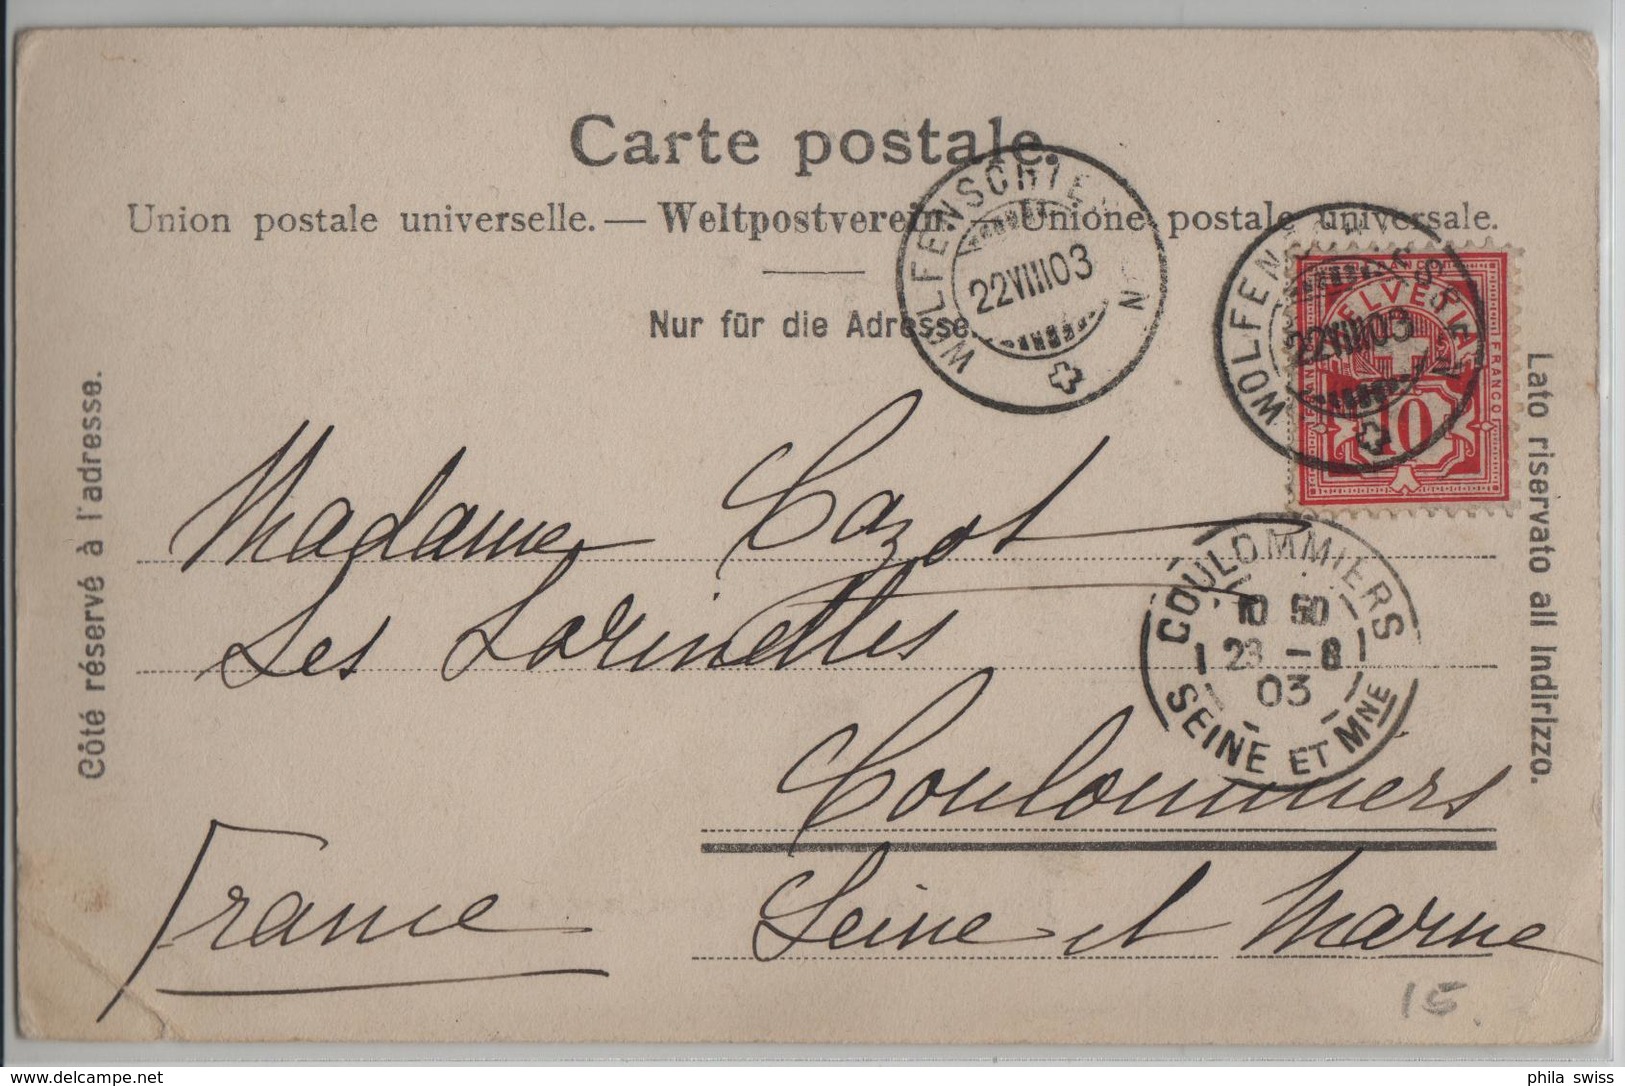 Carte postale.
Union postale universelle. — Weltpostverein. — Unione postale universale.
Nur für die Adresse.
Côté réservé à l'adresse.
Lato riservato all Indirizzo.
WOLFENSCHIESSEN
22 VIII 03
WOLFENSCHIESSEN
22 VIII 03
HELVETIA
FRANCO
10
Madame Cazot
Les Lorinettes
COULOMMIERS
10 50
23 - 8
03
SEINE ET MNE
Coulommiers
Seine et Marne
France
15
delcampe.net
phila_swiss